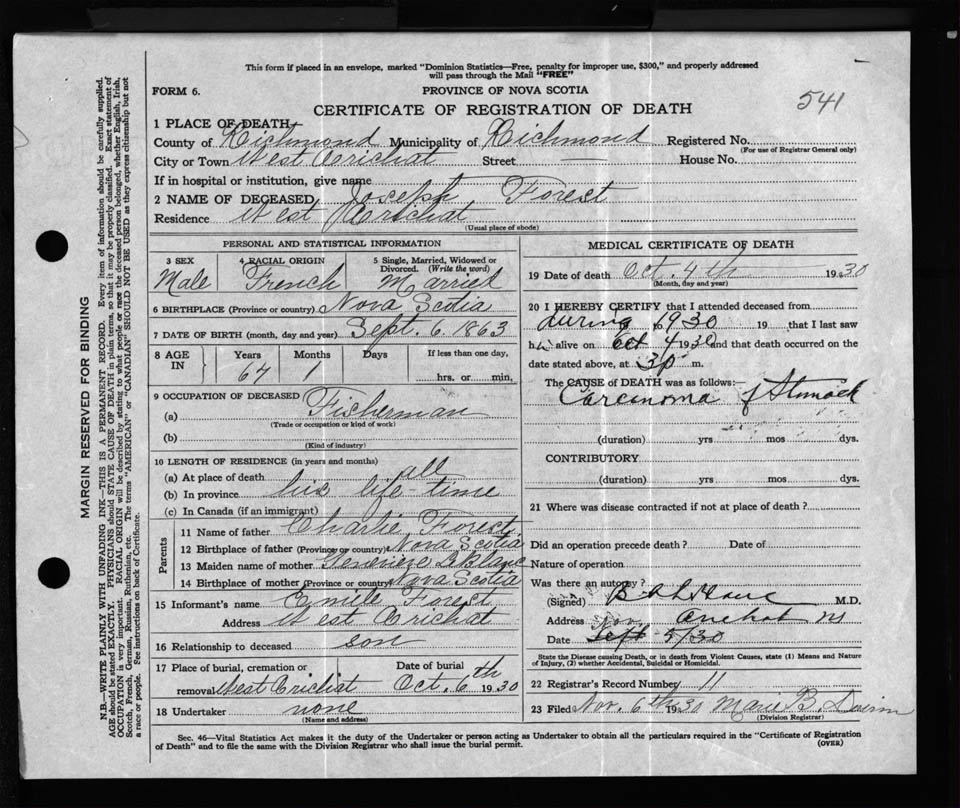 This form if placed in an envelope, marked "Dominion Statistics—Free, penalty for improper use, $300," and properly addressed
will pass through the Mail "FREE"
FORM 6.
PROVINCE OF NOVA SCOTIA
541
CERTIFICATE OF REGISTRATION OF DEATH
1 PLACE OF DEATH
County of Richmond Municipality of Richmond Registered No.
(For use of Registrar General only)
City or Town West Arichat Street — House No.
If in hospital or institution, give name
2 NAME OF DECEASED Joseph Forest
Residence West Arichat
(Usual place of abode)
PERSONAL AND STATISTICAL INFORMATION
3 SEX
Male
4 RACIAL ORIGIN
French
5 Single, Married, Widowed or
Divorced. (Write the word)
Married
6 BIRTHPLACE (Province or country) Nova Scotia
7 DATE OF BIRTH (month, day and year) Sept. 6. 1863
8 AGE
IN
Years
67
Months
1
Days
If less than one day,
hrs. or min.
9 OCCUPATION OF DECEASED
(a) Fisherman
(Trade or occupation or kind of work)
(b)
(Kind of industry)
10 LENGTH OF RESIDENCE (in years and months)
(a) At place of death all
(b) In province his life-time
(c) In Canada (if an immigrant)
Parents
11 Name of father Charlie Forest
12 Birthplace of father (Province or country) Nova Scotia
13 Maiden name of mother
14 Birthplace of mother (Province or country) Nova Scotia
15 Informant's name Emile Forest
Address West Arichat
16 Relationship to deceased son
17 Place of burial, cremation or
removal West Arichat
Date of burial
Oct. 6th 1930
18 Undertaker none
(Name and address)
MEDICAL CERTIFICATE OF DEATH
19 Date of death Oct. 4th 1930
(Month, day and year)
20 I HEREBY CERTIFY that I attended deceased from
during to 1930 19 that I last saw
h alive on Oct 4 1930 and that death occurred on the
date stated above, at m.
The CAUSE of DEATH was as follows:—
Carcinoma of Stomach
(duration) yrs mos dys.
CONTRIBUTORY
(duration) yrs mos dys.
21 Where was disease contracted if not at place of death?
Did an operation precede death? Date of
Nature of operation
Was there an autopsy?
(Signed) M.D.
Address Arichat NS
Date Sept 5/30
State the Disease causing Death, or in death from Violent Causes, state (1) Means and Nature
of Injury, (2) whether Accidental, Suicidal or Homicidal.
22 Registrar's Record Number 11
23 Filed Nov. 6th 1930 Marie B.
(Division Registrar)
Sec. 46—Vital Statistics Act makes it the duty of the Undertaker or person acting as Undertaker to obtain all the particulars required in the "Certificate of Registration
of Death" and to file the same with the Division Registrar who shall issue the burial permit.
(OVER)
MARGIN RESERVED FOR BINDING
N.B.—WRITE PLAINLY WITH UNFADING INK—THIS IS A PERMANENT RECORD. Every item of information should be carefully supplied.
AGE should be stated EXACTLY. PHYSICIANS should STATE CAUSE OF DEATH in plain terms, so that it may be properly classified. Exact statement of
OCCUPATION is very important. RACIAL ORIGIN will be described by stating to what people or race the deceased person belonged, whether English, Irish,
Scotch, French, German, Russian, Ruthenian, etc. The terms "AMERICAN" or "CANADIAN" SHOULD NOT BE USED as they express citizenship but not
a race or people. See instructions on back of Certificate.